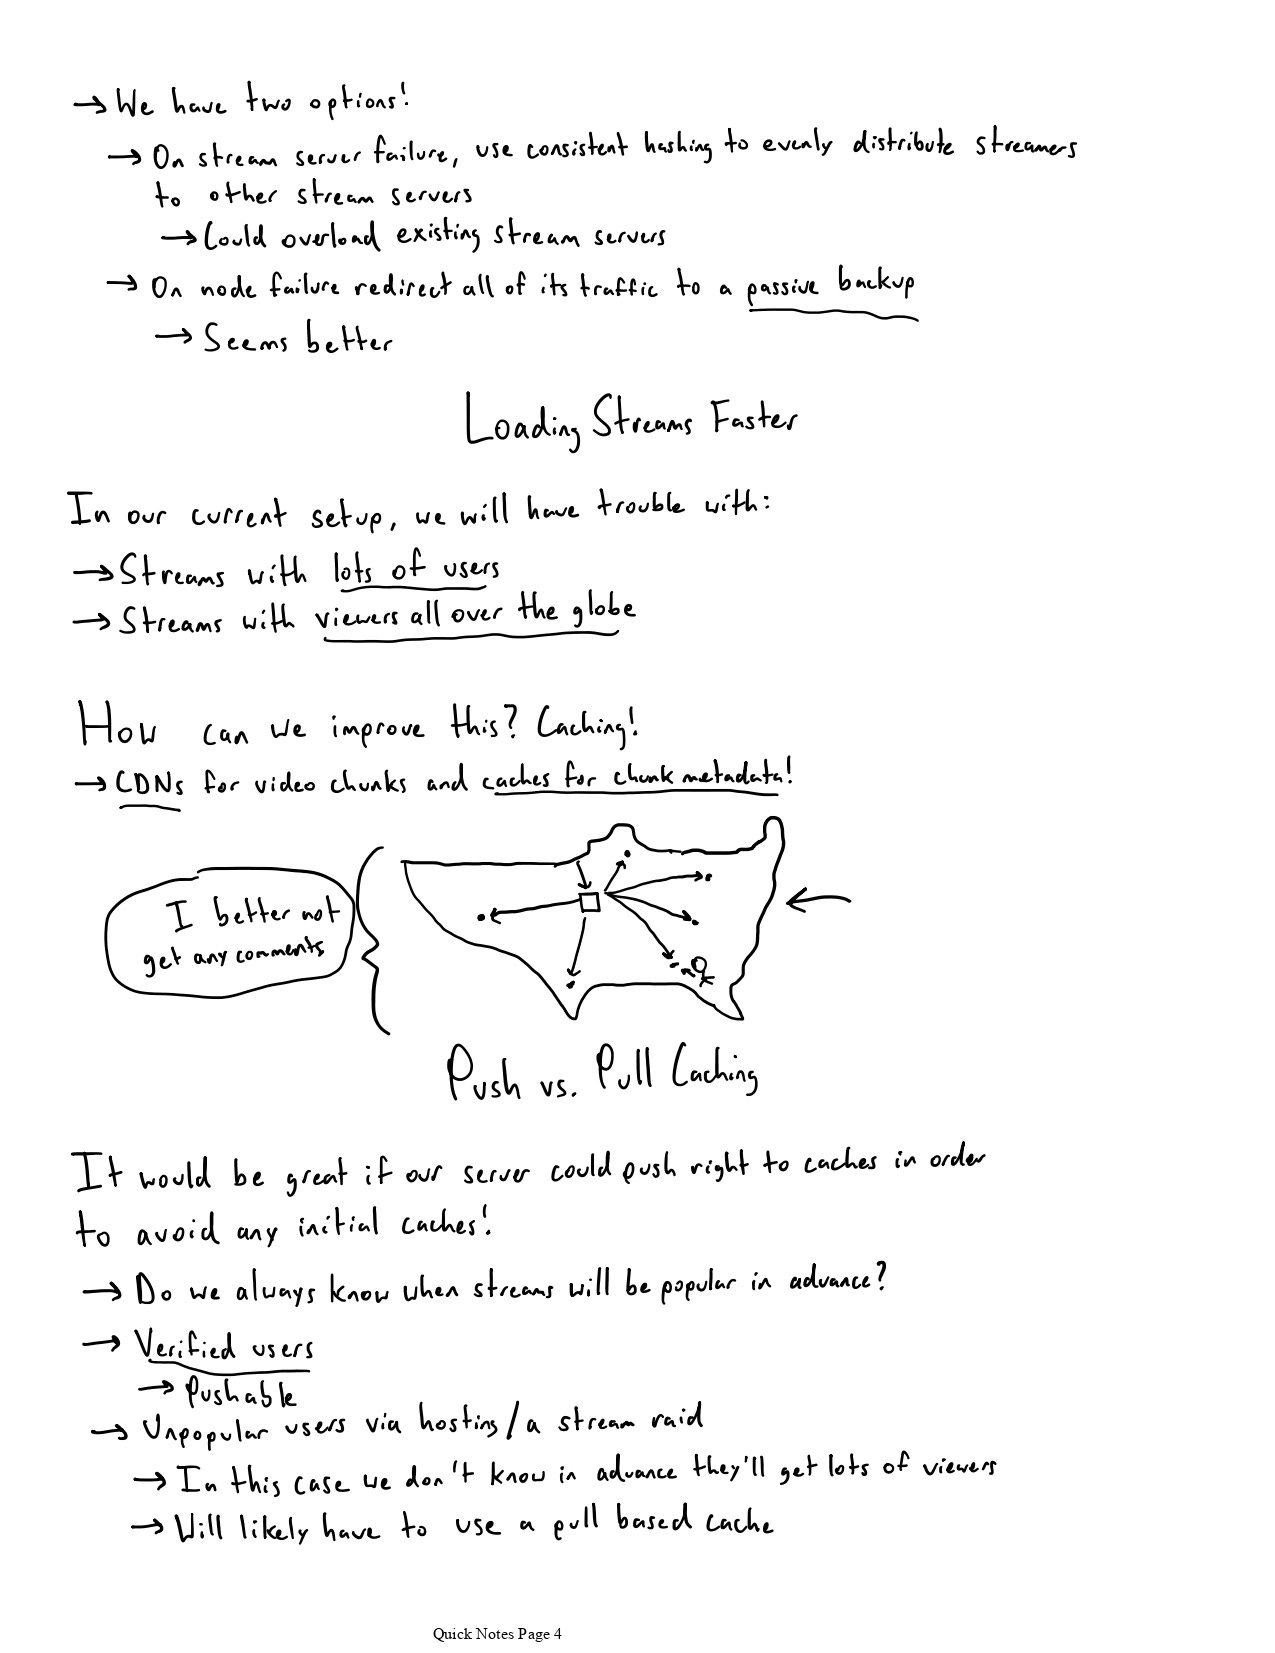 → We have two options!
→ On stream server failure, use consistent hashing to evenly distribute streamers
to other stream servers
→ Could overload existing stream servers
→ On node failure redirect all of its traffic to a passive backup
→ Seems better
Loading Streams Faster
In our current setup, we will have trouble with:
→ Streams with lots of users
→ Streams with viewers all over the globe
How can we improve this? Caching!
→ CDNs for video chunks and caches for chunk metadata!
I better not
get any comments
Push vs. Pull Caching
It would be great if our server could push right to caches in order
to avoid any initial caches!
→ Do we always know when streams will be popular in advance?
→ Verified users
→ Pushable
→ Unpopular users via hosting/a stream raid
→ In this case we don't know in advance they'll get lots of viewers
→ Will likely have to use a pull based cache
Quick Notes Page 4